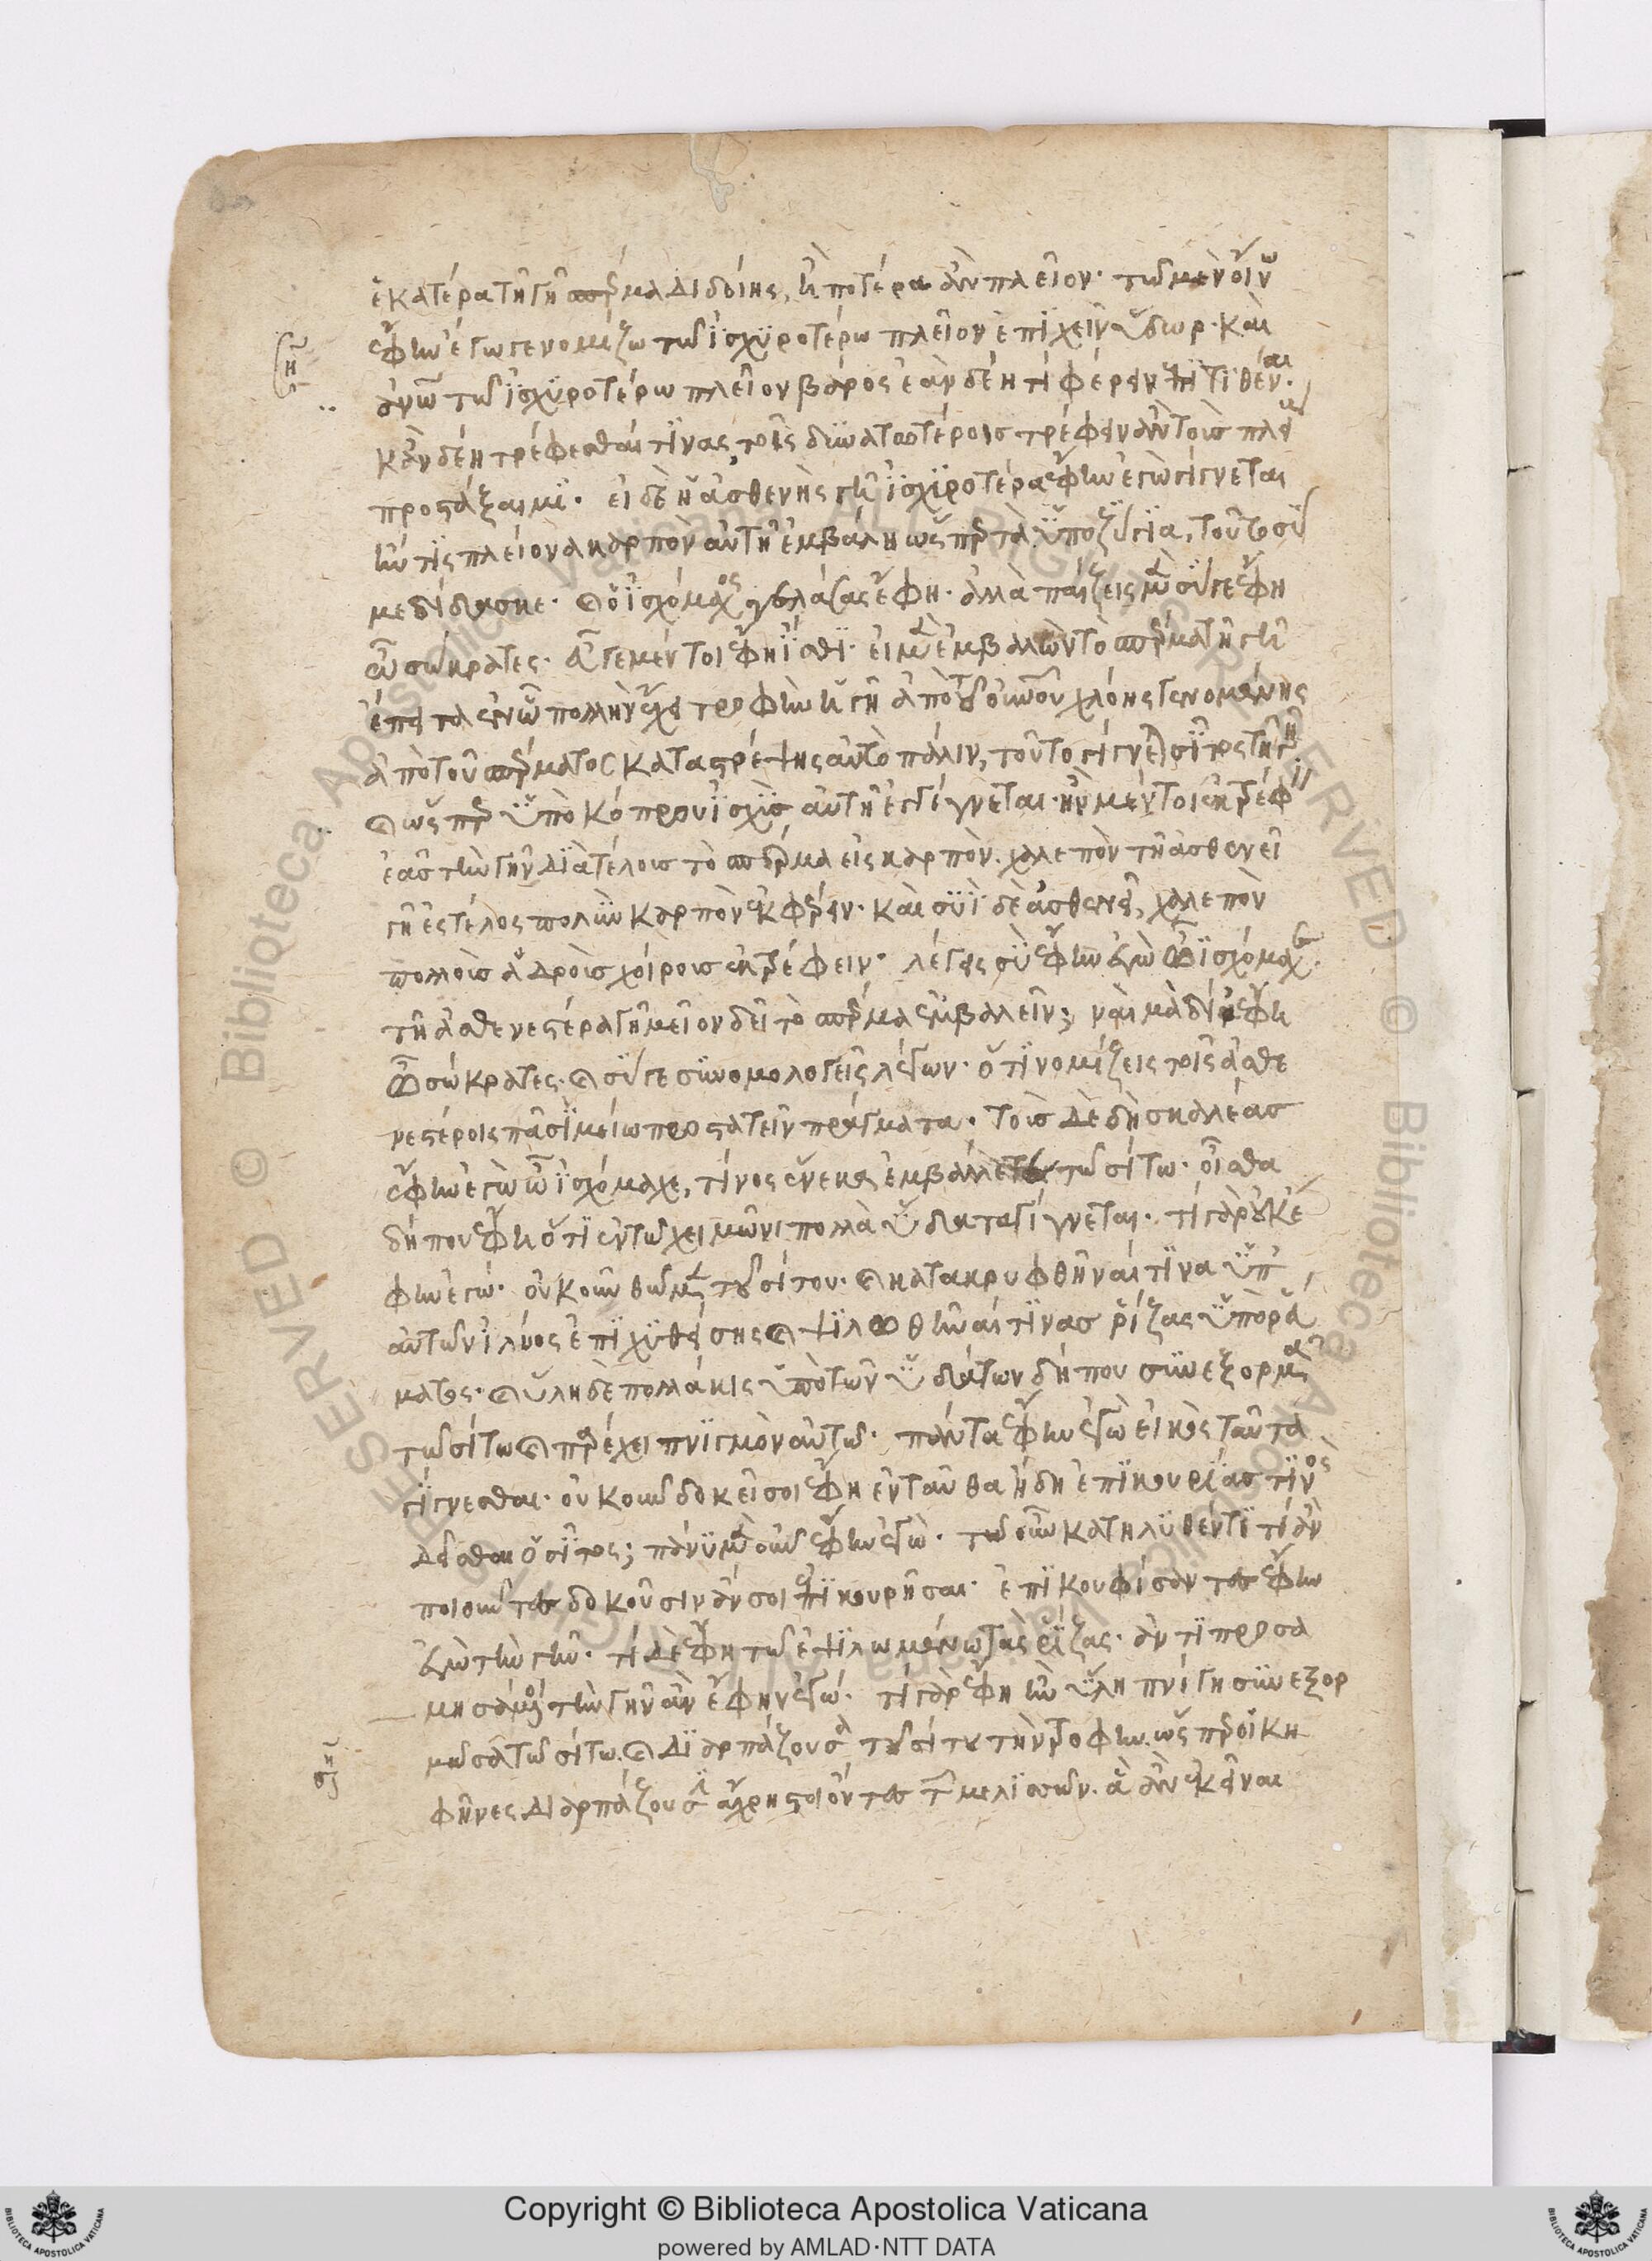 ἑκατέρα τῆ γῆ σπέρμα διδοίης, ἢ ποτέρα ἂν πλεῖον· τῶ μὲν οἴνω
ἔφην ἐγώ γε νομίζω τῶ ἰσχυροτέρω πλεῖον ἐπιχεῖν ὕδωρ· καὶ
ἀνω τῶ ἰσχυροτέρω πλεῖον βάρος ἐὰν δέη τί φέρειν ἐπιτιθέναι·
κἂν δέη τρέφεσθαι τινας, τοῖς δυνατωτέροις τρέφειν ἂν τοὺς πλεί
προστάξαιμι· εἰ δὲ ἡ ἀσθενὴς γῆ ἰσχυροτέρα ἔφην ἐγὼ γίγνεται
ἤν τις πλείονα καρπὸν αὐτῆ ἐμβάλη ὥσπερ τὰ ὑποζύγια, τοῦτο σύ
με δίδασκε· καὶ ὁ ἰσχόμαχος γελάσας ἔφη· ἀλλὰ παίζεις μὲν σύ γε ἔφη
ὦ σώκρατες· εὖ γε μέντοι ἔφη ἴσθι· εἰ μὲν ἐμβαλὼν τὸ σπέρμα τῆ γῆ
ἔπειτα ἐν ὧ πολλὴν ἔχει τροφὴν ἡ γῆ ἀπὸ τοῦ οὐνοῦ χλόης γενομένης
ἀπὸ τοῦ σπέρματος καταστρέψης αὐτὸ πάλιν, τοῦτο γίγνεται σῖτος τῆ γῆ
καὶ ὥσπερ ὑπὸ κόπρου ἰσχὺς αὐτῆ ἐγγίγνεται· ἢν μέντοι ἐκτρέφειν
ἐᾶς τὴν γῆν διὰ τέλους τὸ σπέρμα εἰς καρπὸν· χαλεπὸν τῆ ἀσθενεῖ
γῆ ἐς τέλος πολὺν καρπὸν ἐκφέρειν· καὶ συῒ δὲ ἀσθενεῖ, χαλεπὸν
πολλοὺς ἁδροὺς χοίρους ἐκτρέφειν· λέγεις σὺ ἔφην ἐγὼ ὦ ἰσχόμαχε
τῆ ἀσθενεστέρα γῆ μεῖον δεῖ τὸ σπέρμα ἐμβαλεῖν; ναὶ μὰ δί' ἔφη
ὦ σώκρατες· καὶ σύ γε συνομολογεῖς λέγων· ὅτι νομίζεις τοῖς ἀσθε
νεστέροις πᾶσι μείω προστατεῖν πράγματα· τοὺς δὲ δὴ σκαλέας
ἔφην ἐγὼ ὦ ἰσχόμαχε, τίνος ἕνεκα ἐμβάλλετε τῶ σίτω· οἶσθα
δήπου ἔφη ὅτι ἐν τῶ χειμῶνι πολλὰ ὕδατα γίγνεται· τί γὰρ οὐκ ἔ
φην ἐγώ· οὐκοῦν θῶμεν τοῦ σίτου· καὶ κατακρυφθῆναί τινα ὑπ'
αὐτῶν ἰλύος ἐπιχυθείσης καὶ ψιλωθῆναί τινας ῥίζας ὑπὸ ῥεύ
ματος· καὶ ὕλη δὲ πολλάκις ὑπὸ τῶν ὑδάτων δήπου συνεξορμᾶ
τῶ σίτω καὶ παρέχει πνιγμὸν αὐτῶ· πάντα ἔφην ἐγὼ εἰκὸς ταῦτα
γίγνεσθαι· οὐκοῦν δοκεῖ σοι ἔφη ἐνταῦθα ἤδη ἐπικουρίας τινὸς
δεῖσθαι ὁ σῖτος; πάνυ μὲν οὖν ἔφην ἐγώ· τῶ οὖν κατηλυθέντι τί ἂν
ποιοῦντες δοκοῦσιν ἄν σοι ἐπικουρῆσαι· ἐπικουφίσαντες ἔφην
ἐγὼ τὴν γῆν· τί δὲ ἔφη τῶ ἐψιλωμένω τὰς ῥίζας· ἀντιπροσα
μησάμενοι τὴν γῆν ἂν ἔφην ἐγώ· τί γὰρ ἔφη ἢν ὕλη πνίγη συνεξορ
μῶσα τῶ σίτω· καὶ διαρπάζουσα τοῦ σίτου τὴν τροφὴν· ὥσπερ οἱ κη
φῆνες διαρπάζουσιν ἄχρηστοι ὄντες τῶν μελισσῶν· ἃ ἂν ἐκεῖναι